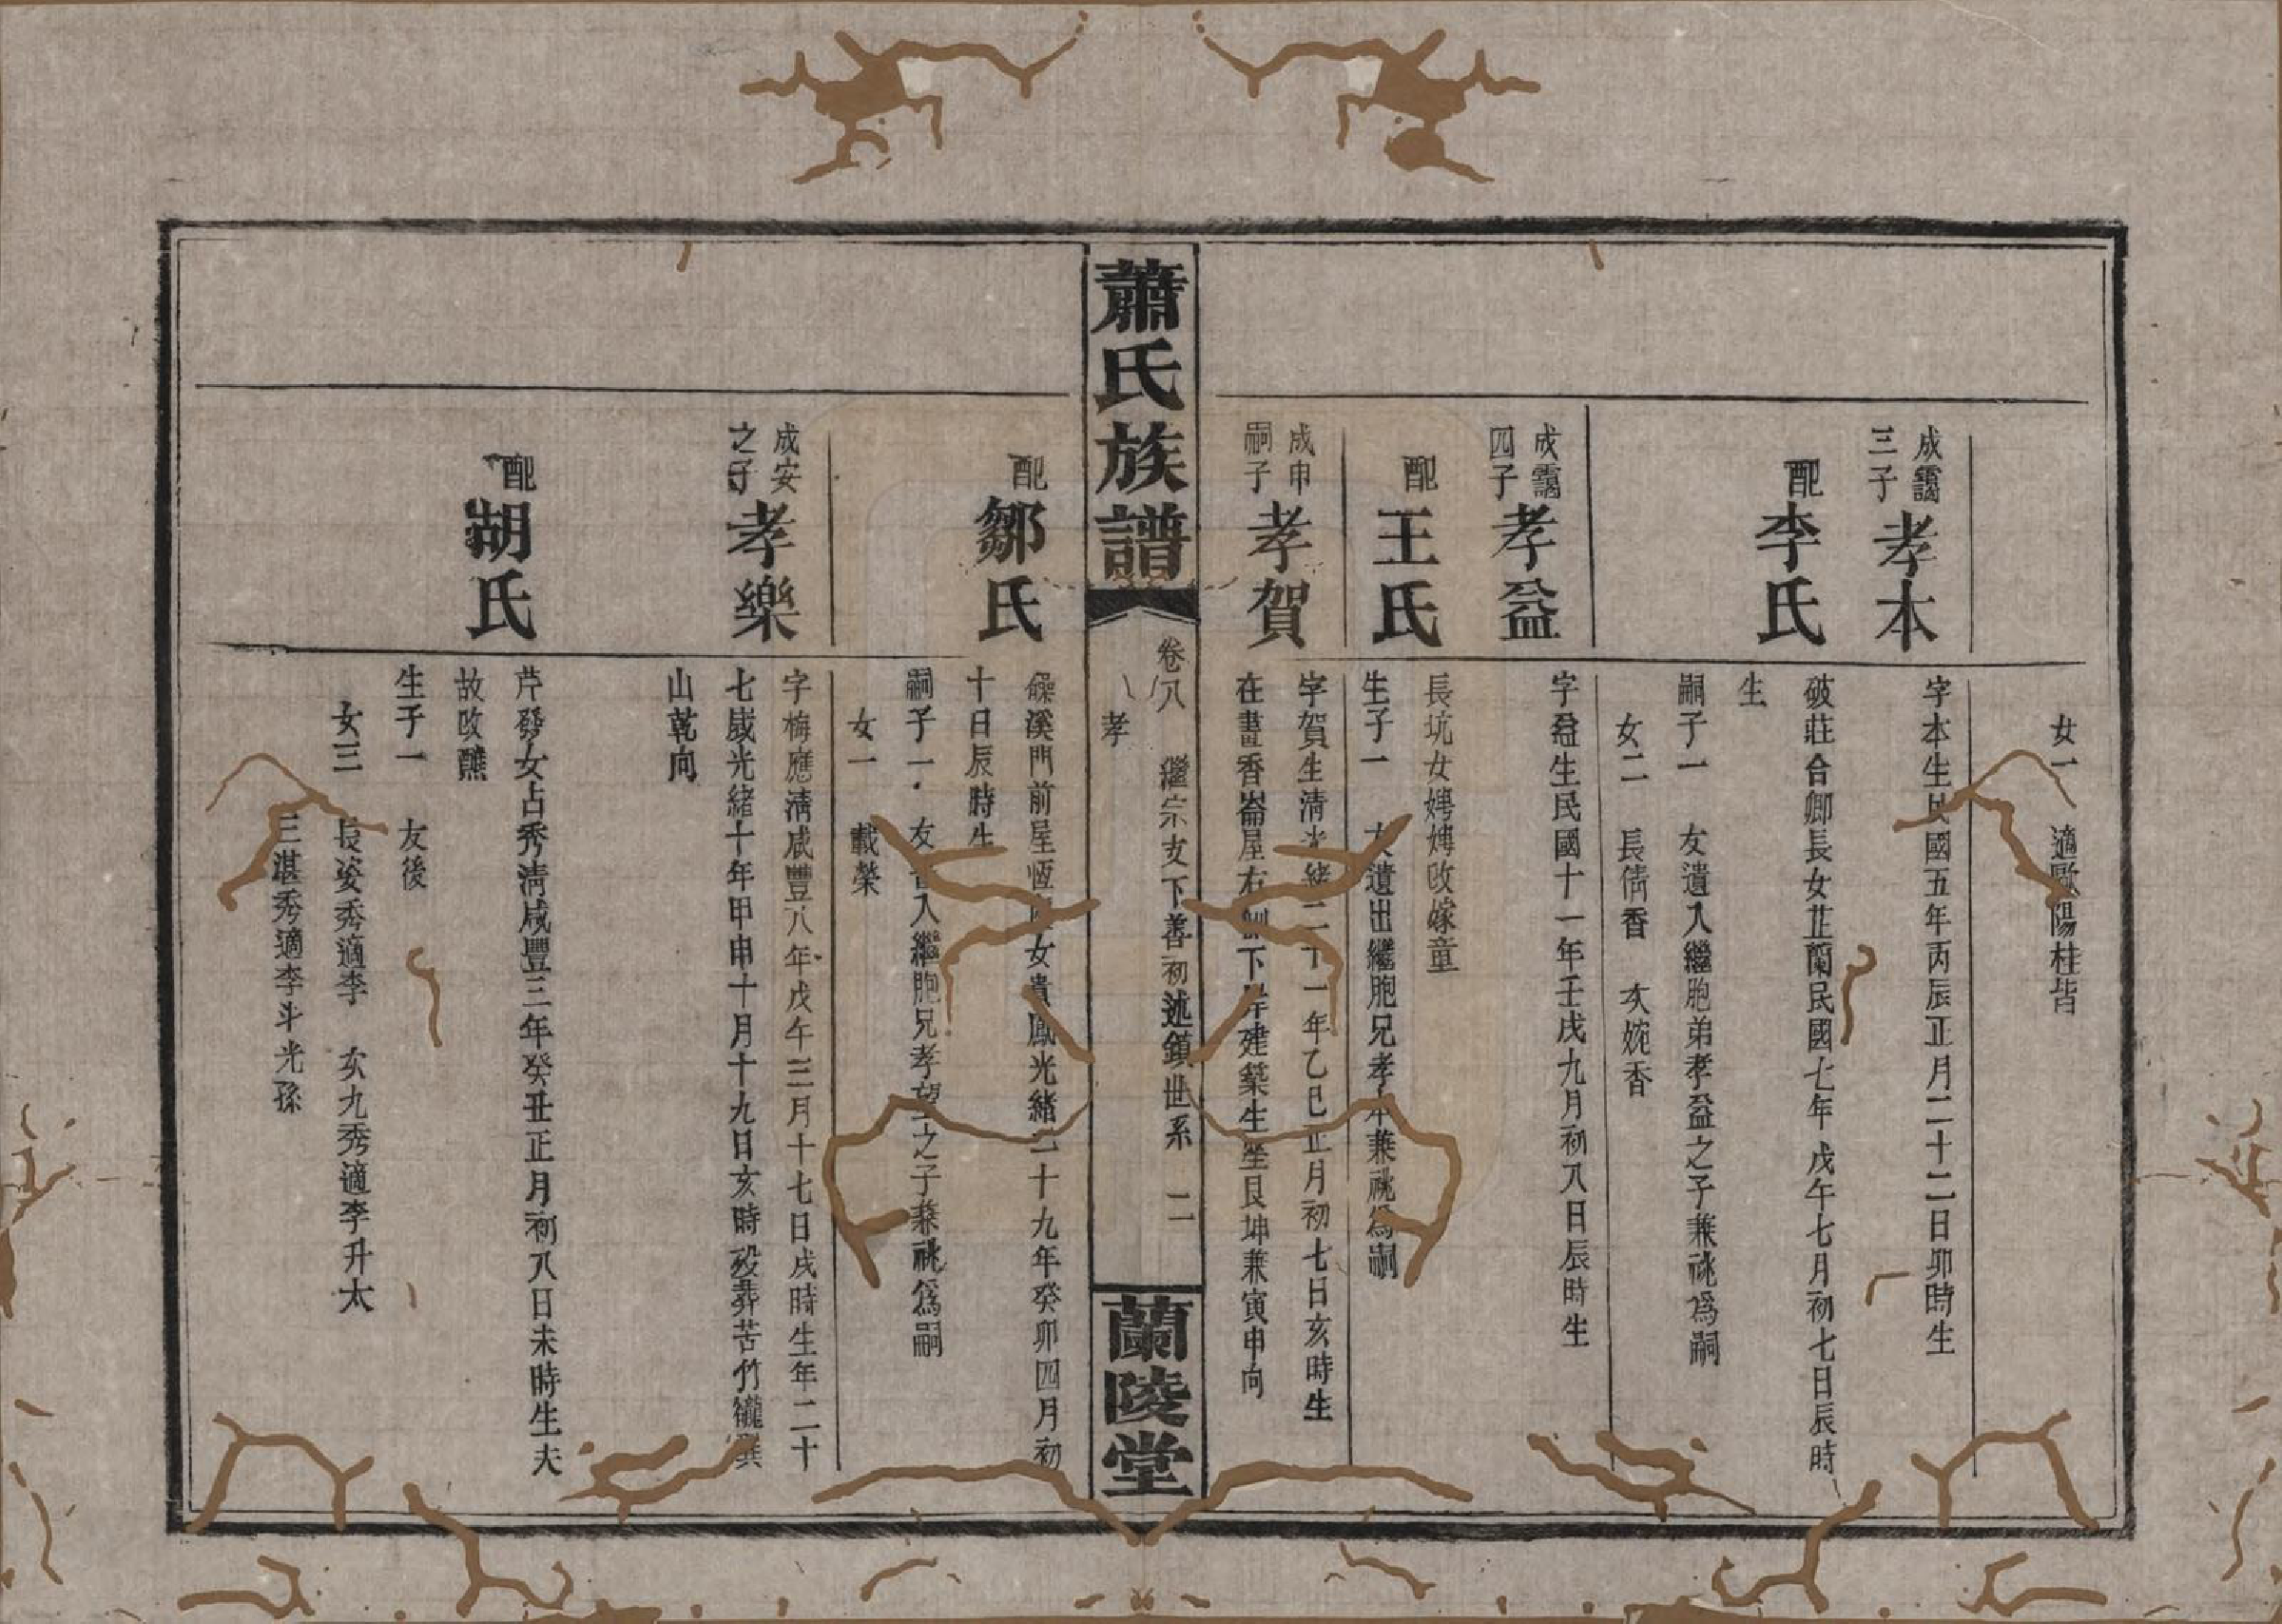 女一 適歐陽桂皆
成靄
三子
孝本
字本生民國五年丙辰正月二十二日卯時生
配
李氏
破莊合卿長女芷蘭民國七年戊午七月初七日辰時
生
嗣子一 友遺入繼胞弟孝益之子兼祧爲嗣
女二 長倩香 次婉香
成靄
四子
孝益
字益生民國十一年壬戌九月初八日辰時生
配
王氏
長坑女娉娉改嫁童
生子一 友遺出繼胞兄孝本兼祧爲嗣
成申
嗣子
孝賀
字賀生清光緒三十一年乙巳正月初七日亥時生
在畫香崙屋右 下岸建築生塋艮坤兼寅申向
蕭氏族譜
卷八 繼宗支下善初述鎮世系 二
孝
蘭陵堂
配
鄒氏
溪門前屋恆 女貴鳳光緒二十九年癸卯四月初
十日辰時生
嗣子一 友 入繼胞兄孝望之子兼祧爲嗣
女一 載榮
成安
之子
孝樂
字梅應清咸豐八年戊午三月十七日戌時生年二十
七歲光緒十年甲申十月十九日亥時歿葬苦竹 巽
山乾向
配
胡氏
芹發女占秀清咸豐三年癸丑正月初八日未時生夫
故改醮
生子一 友後
女三 長姿秀適李 次九秀適李升太
三湛秀適李斗光孫